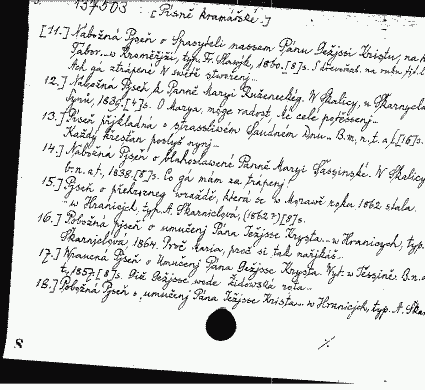 137503 [Písně kramářské.]
[11.] Nábožná Pjseň o Spasyteli nassem Pánu Gežjssi Kristu, na h
Tábor... w Kroměřjži, typ. Fr. Slawjk, 1850. [8]s. S dřevořezb. na rubu tit. l.
Ach gá ztrápené W swětě stwořenj...
12.] Nábožná Pjseň k Panně Maryi Růženecké. W Skalicy, u Škarnycla
Synů, 1839. [4]s. O Marya, moge radost, Mé celé potěssenj...
13.] Pjseň přjkladná o strasslivém Saudném Dnu... B.m., n., t. a. l. [16]s.
Každý křesťan poslyš nynj...
14.] Nábožná Pjseň o blahoslavené Panně Maryi Sassinské. W Skalicy
b.n.a t., 1838. [8]s. Co gá mám za trápenj...
15.] Pjseň o přehrozneg wraždě, která se w Morawě roku 1862 stala.
... w Hranicjch, typ. A. Škarniclová, (1862?) [8]s.
16.] Pobožná pjseň o umučenj Pána Ježjsse Krysta... w Hranicych, typ.
Škarnjclová, 1864. Proč Maria, proč si tak nařjkáš...
17.] Wraucná Pjseň o Umučenj Pána Gežjsse Krysta. Wyt. w Těssjně. B.n.a
t., 1857. [8]s. Giž Gežjsse wede židowská rota...
18.] Pobožná Pjseň o umučenj Pána Ježjsse Krista... w Hranicjch, typ. A. Škar
S